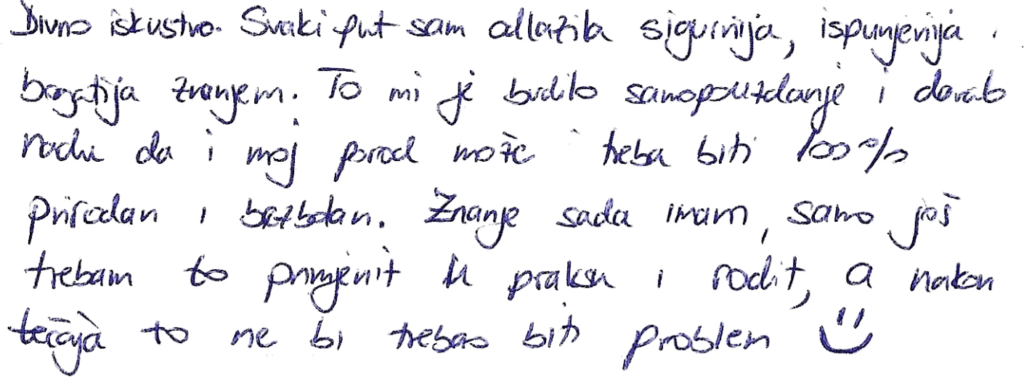 Divno iskustvo. Svaki put sam odlazila sigurnija, ispunjenija i
bogatija znanjem. To mi je budilo samopouzdanje i davalo
nadu da i moj porod može i treba biti 100%
prirodan i bezbolan. Znanje sada imam, samo još
trebam to primjenit u praksu i rodit, a nakon
tečaja to ne bi trebao biti problem